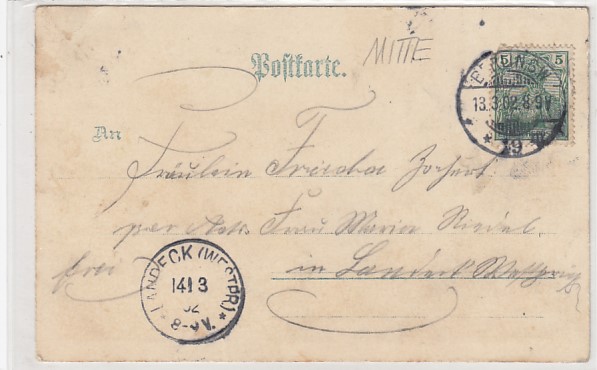 MITTE
Postkarte.
5 5
BERLIN S.W.
13.3.02.8-9V.
* 19 *
An
Fräulein Frieda
per Adr. Frau Maria Riedel,
in Landeck Westpr.
LANDECK (WESTPR)
14 3
02
* 7-8 *